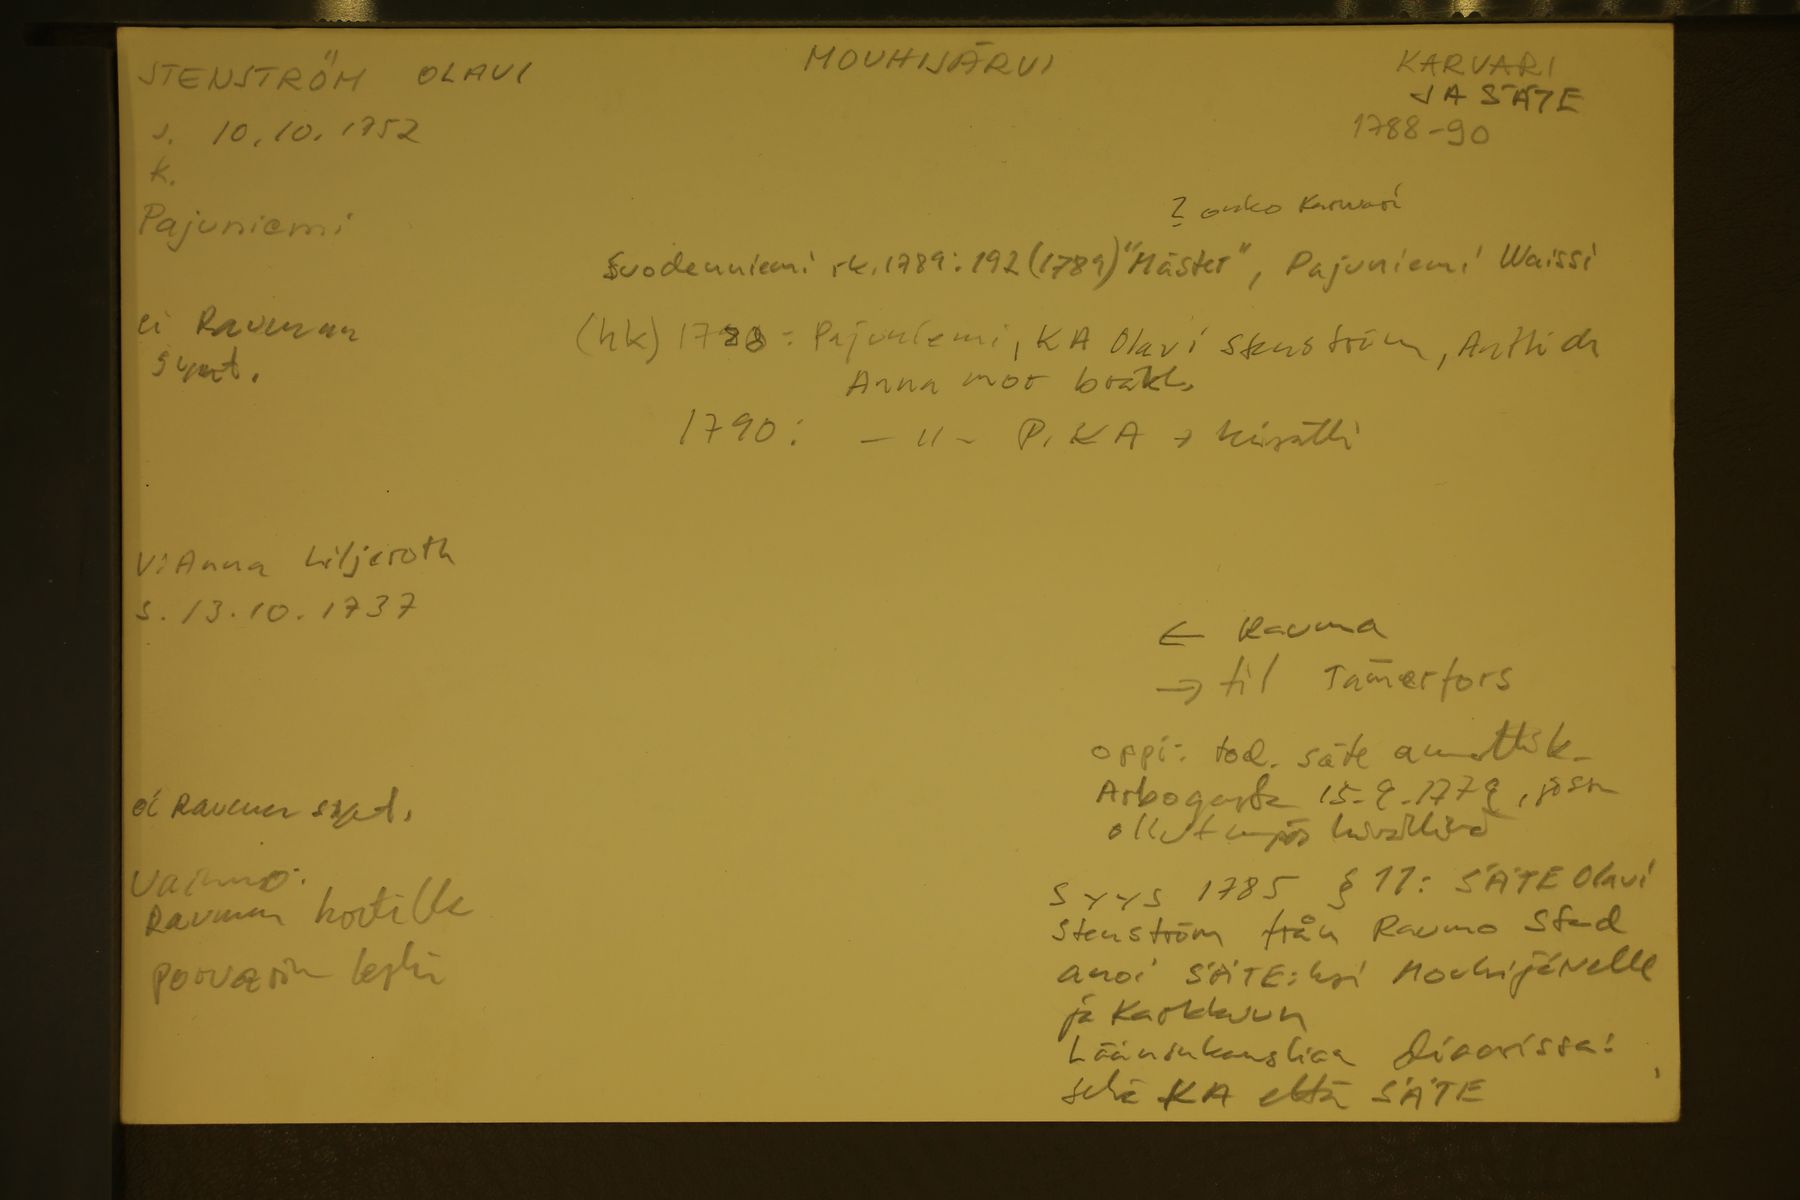 STENSTRÖM OLAVI
MOUHIJÄRVI
KARVARI
JA SÄTE
1788-90
s. 10.10.1752
k.
Pajuniemi
? onko Karvari
Suodenniemi rk.1789: 192 (1789) "Mäster", Pajuniemi Waissi
ei Rauman
synt.
(hk) 1788: Pajuniemi, KA Olavi Stenström, Antti ch
Anna mor bräkl.
1790: - 11 - P. KA → kisälli
V: Anna Liljeroth
s. 13.10.1737
← Rauma
→ til Tam̄erfors
oppi: tod. säte
Arbogasta 15.9.1779, jossa
ollut myös kisällinä
ei Rauman synt.
Vaimo:
Rauman kortille
porvarin leski
SYYS 1785 § 11: SÄTE Olavi
Stenström från Raumo Stad
anoi SÄTE:ksi Mouhijärvelle
ja Karkkuun
Lääninkanslian diaarissa:
sekä KA että SÄTE